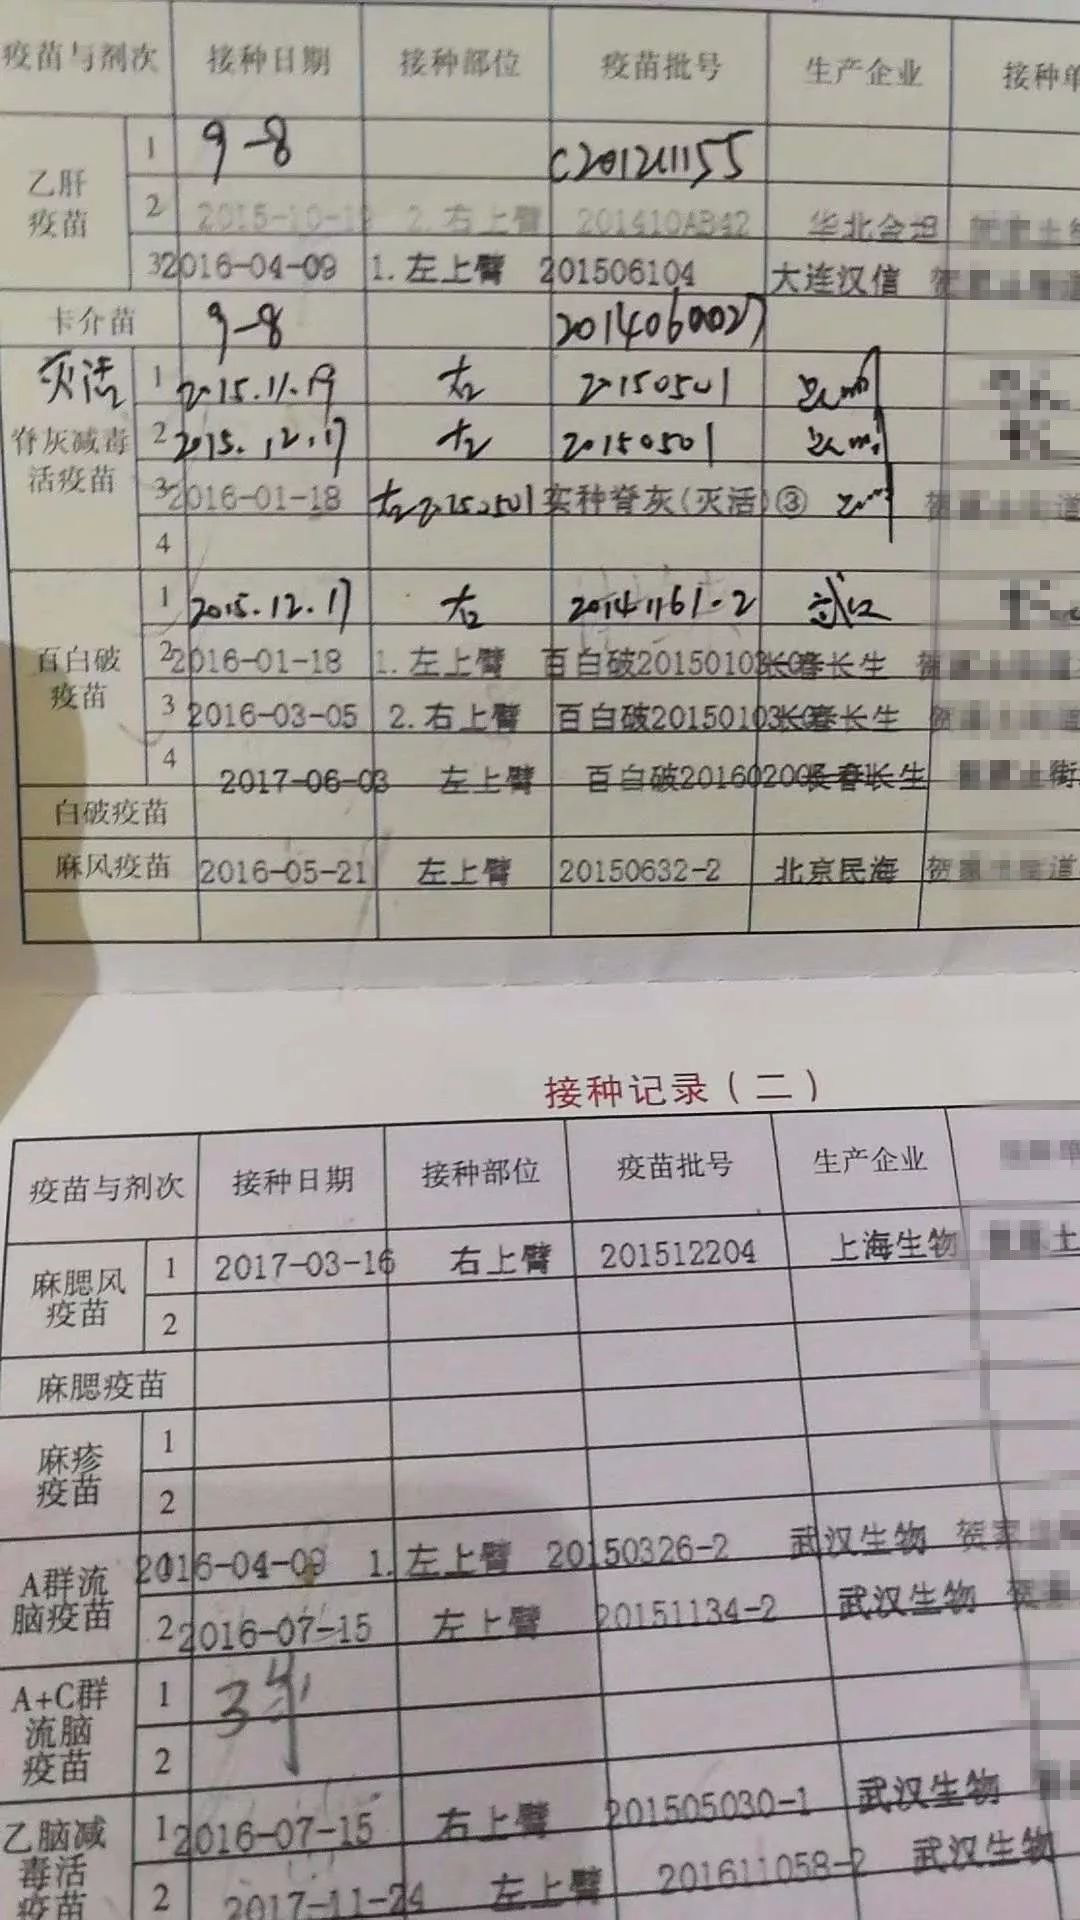 疫苗与剂次 接种日期 接种部位 疫苗批号 生产企业 接种单
乙肝疫苗 1 9-8 C201211155
2 2015-10-1 2.右上臂 201410AB42 华北金坦
3 2016-04-09 1.左上臂 201506104 大连汉信 贺
卡介苗 9-8 201406a027
灭活
脊灰减毒活疫苗 1 2015.11.19 20150501
2 2015.12.17 20150501
3 2016-01-18 实种脊灰(灭活)③ 贺 道
4
百白破疫苗 1 2015.12.17 20141161-2 武汉
2 2016-01-18 1.左上臂 百白破2015010 长春长生
3 2016-03-05 2.右上臂 百白破2015010 长春长生
4 2017-06-03 左上臂 百白破2016020 长春长生 街
白破疫苗
麻风疫苗 2016-05-21 左上臂 20150632-2 北京民海 贺 道
接种记录(二)
疫苗与剂次 接种日期 接种部位 疫苗批号 生产企业
麻腮风疫苗 1 2017-03-16 右上臂 201512204 上海生物 土
2
麻腮疫苗
麻疹疫苗 1
2
A群流脑疫苗 2016-04-09 1.左上臂 20150326-2 武汉生物 贺
2 2016-07-15 左上臂 20151134-2 武汉生物
A+C群流脑疫苗 1 3年
2
乙脑减毒活疫苗 1 2016-07-15 右上臂 201505030-1 武汉生物
2 2017-11-24 左上臂 201611058-2 武汉生物